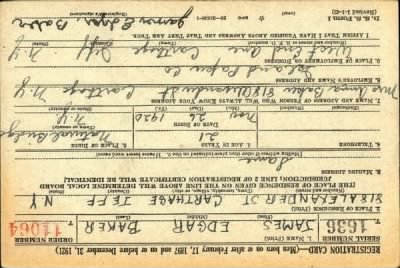 REGISTRATION CARD—(Men born on or after February 17, 1897 and on or before December 31, 1921)
SERIAL NUMBER
1. NAME (Print)
ORDER NUMBER
T- 1636
JAMES EDGAR BAKER
T- 11064
2. PLACE OF RESIDENCE (Print)
518 ALEXANDER ST CARTHAGE JEFF N Y
[THE PLACE OF RESIDENCE GIVEN ON THE LINE ABOVE WILL DETERMINE LOCAL BOARD
JURISDICTION; LINE 2 OF REGISTRATION CERTIFICATE WILL BE IDENTICAL]
3. MAILING ADDRESS
Same
4. TELEPHONE
5. AGE IN YEARS
6. PLACE OF BIRTH
21
Natural Bridge
DATE OF BIRTH
Nov 26 1920
N.Y.
7. NAME AND ADDRESS OF PERSON WHO WILL ALWAYS KNOW YOUR ADDRESS
Mrs Anna Baker 518 Alexander St Carthage N.Y
8. EMPLOYER'S NAME AND ADDRESS
Island Paper Co
9. PLACE OF EMPLOYMENT OR BUSINESS
West End Ave Carthage Jeff N.Y
I AFFIRM THAT I HAVE VERIFIED ABOVE ANSWERS AND THAT THEY ARE TRUE.
D. S. S. Form 1
(Revised 1-1-42)
16—21630-1
James Edgar Baker